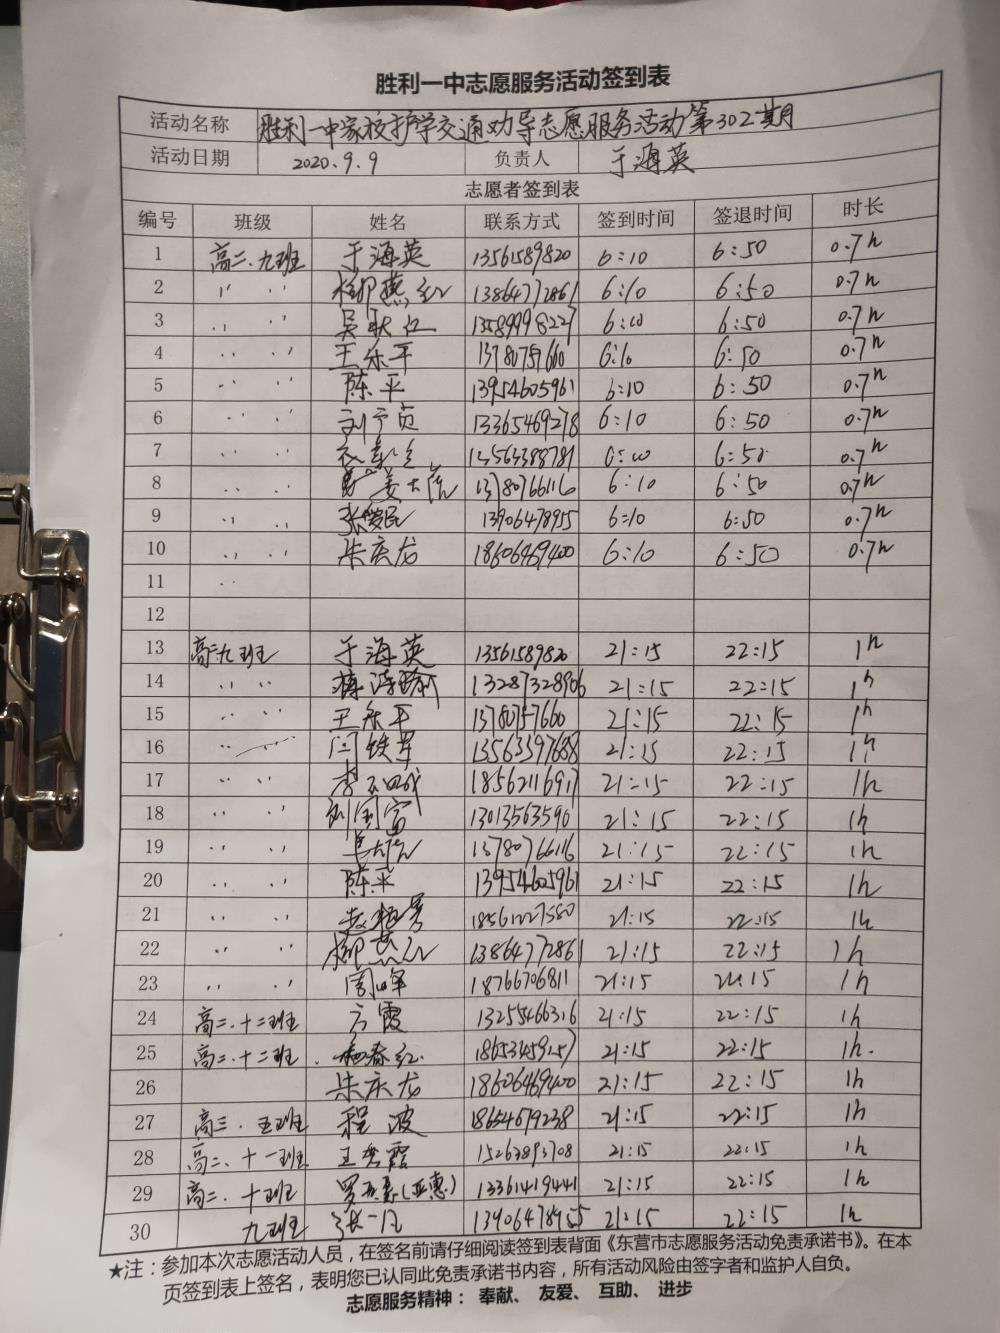 胜利一中志愿服务活动签到表
活动名称 胜利一中家校护学交通劝导志愿服务活动第302期
活动日期 2020.9.9 负责人 于海英
志愿者签到表
编号 班级 姓名 联系方式 签到时间 签退时间 时长
1 高二.九班 于海英 13561589820 6:10 6:50 0.7h
2 〃 柳燕红 13864772861 6:10 6:50 0.7h
3 〃 吴 13589998227 6:10 6:50 0.7h
4 〃 王乐平 13780757660 6:10 6:50 0.7h
5 〃 陈平 13954605961 6:10 6:50 0.7h
6 〃 刘 贞 13365469278 6:10 6:50 0.7h
7 〃 13563388781 6:10 6:50 0.7h
8 〃 姜大 13780766116 6:10 6:50 0.7h
9 〃 张爱民 13906478955 6:10 6:50 0.7h
10 〃 朱庆龙 18606469400 6:10 6:50 0.7h
11 〃
12
13 高二九班 于海英 13561589820 21:15 22:15 1h
14 〃 13287328906 21:15 22:15 1h
15 〃 王乐平 13780757660 21:15 22:15 1h
16 〃 闫铁军 13563397688 21:15 22:15 1h
17 〃 李 18562116917 21:15 22:15 1h
18 〃 刘国富 13013563590 21:15 22:15 1h
19 〃 姜大 13780766116 21:15 22:15 1h
20 〃 陈平 13954605961 21:15 22:15 1h
21 〃 18561227580 21:15 22:15 1h
22 〃 柳燕红 13864772861 21:15 22:15 1h
23 〃 周峰 18766706811 21:15 22:15 1h
24 高二.十二班 方霞 13255466316 21:15 22:15 1h
25 高二.十二班 春红 18653459257 21:15 22:15 1h.
26 朱庆龙 18606469400 21:15 22:15 1h
27 高三.五班 程波 18654679238 21:15 22:15 1h
28 高二、十一班 王秀霞 15263893708 21:15 22:15 1h
29 高二.十班 罗 (亚惠) 13361419441 21:15 22:15 1h
30 九班 张 13906478955 21:15 22:15 1h
★注：参加本次志愿活动人员，在签名前请仔细阅读签到表背面《东营市志愿服务活动免责承诺书》。在本
页签到表上签名，表明您已认同此免责承诺书内容，所有活动风险由签字者和监护人自负。
志愿服务精神： 奉献、 友爱、 互助、 进步